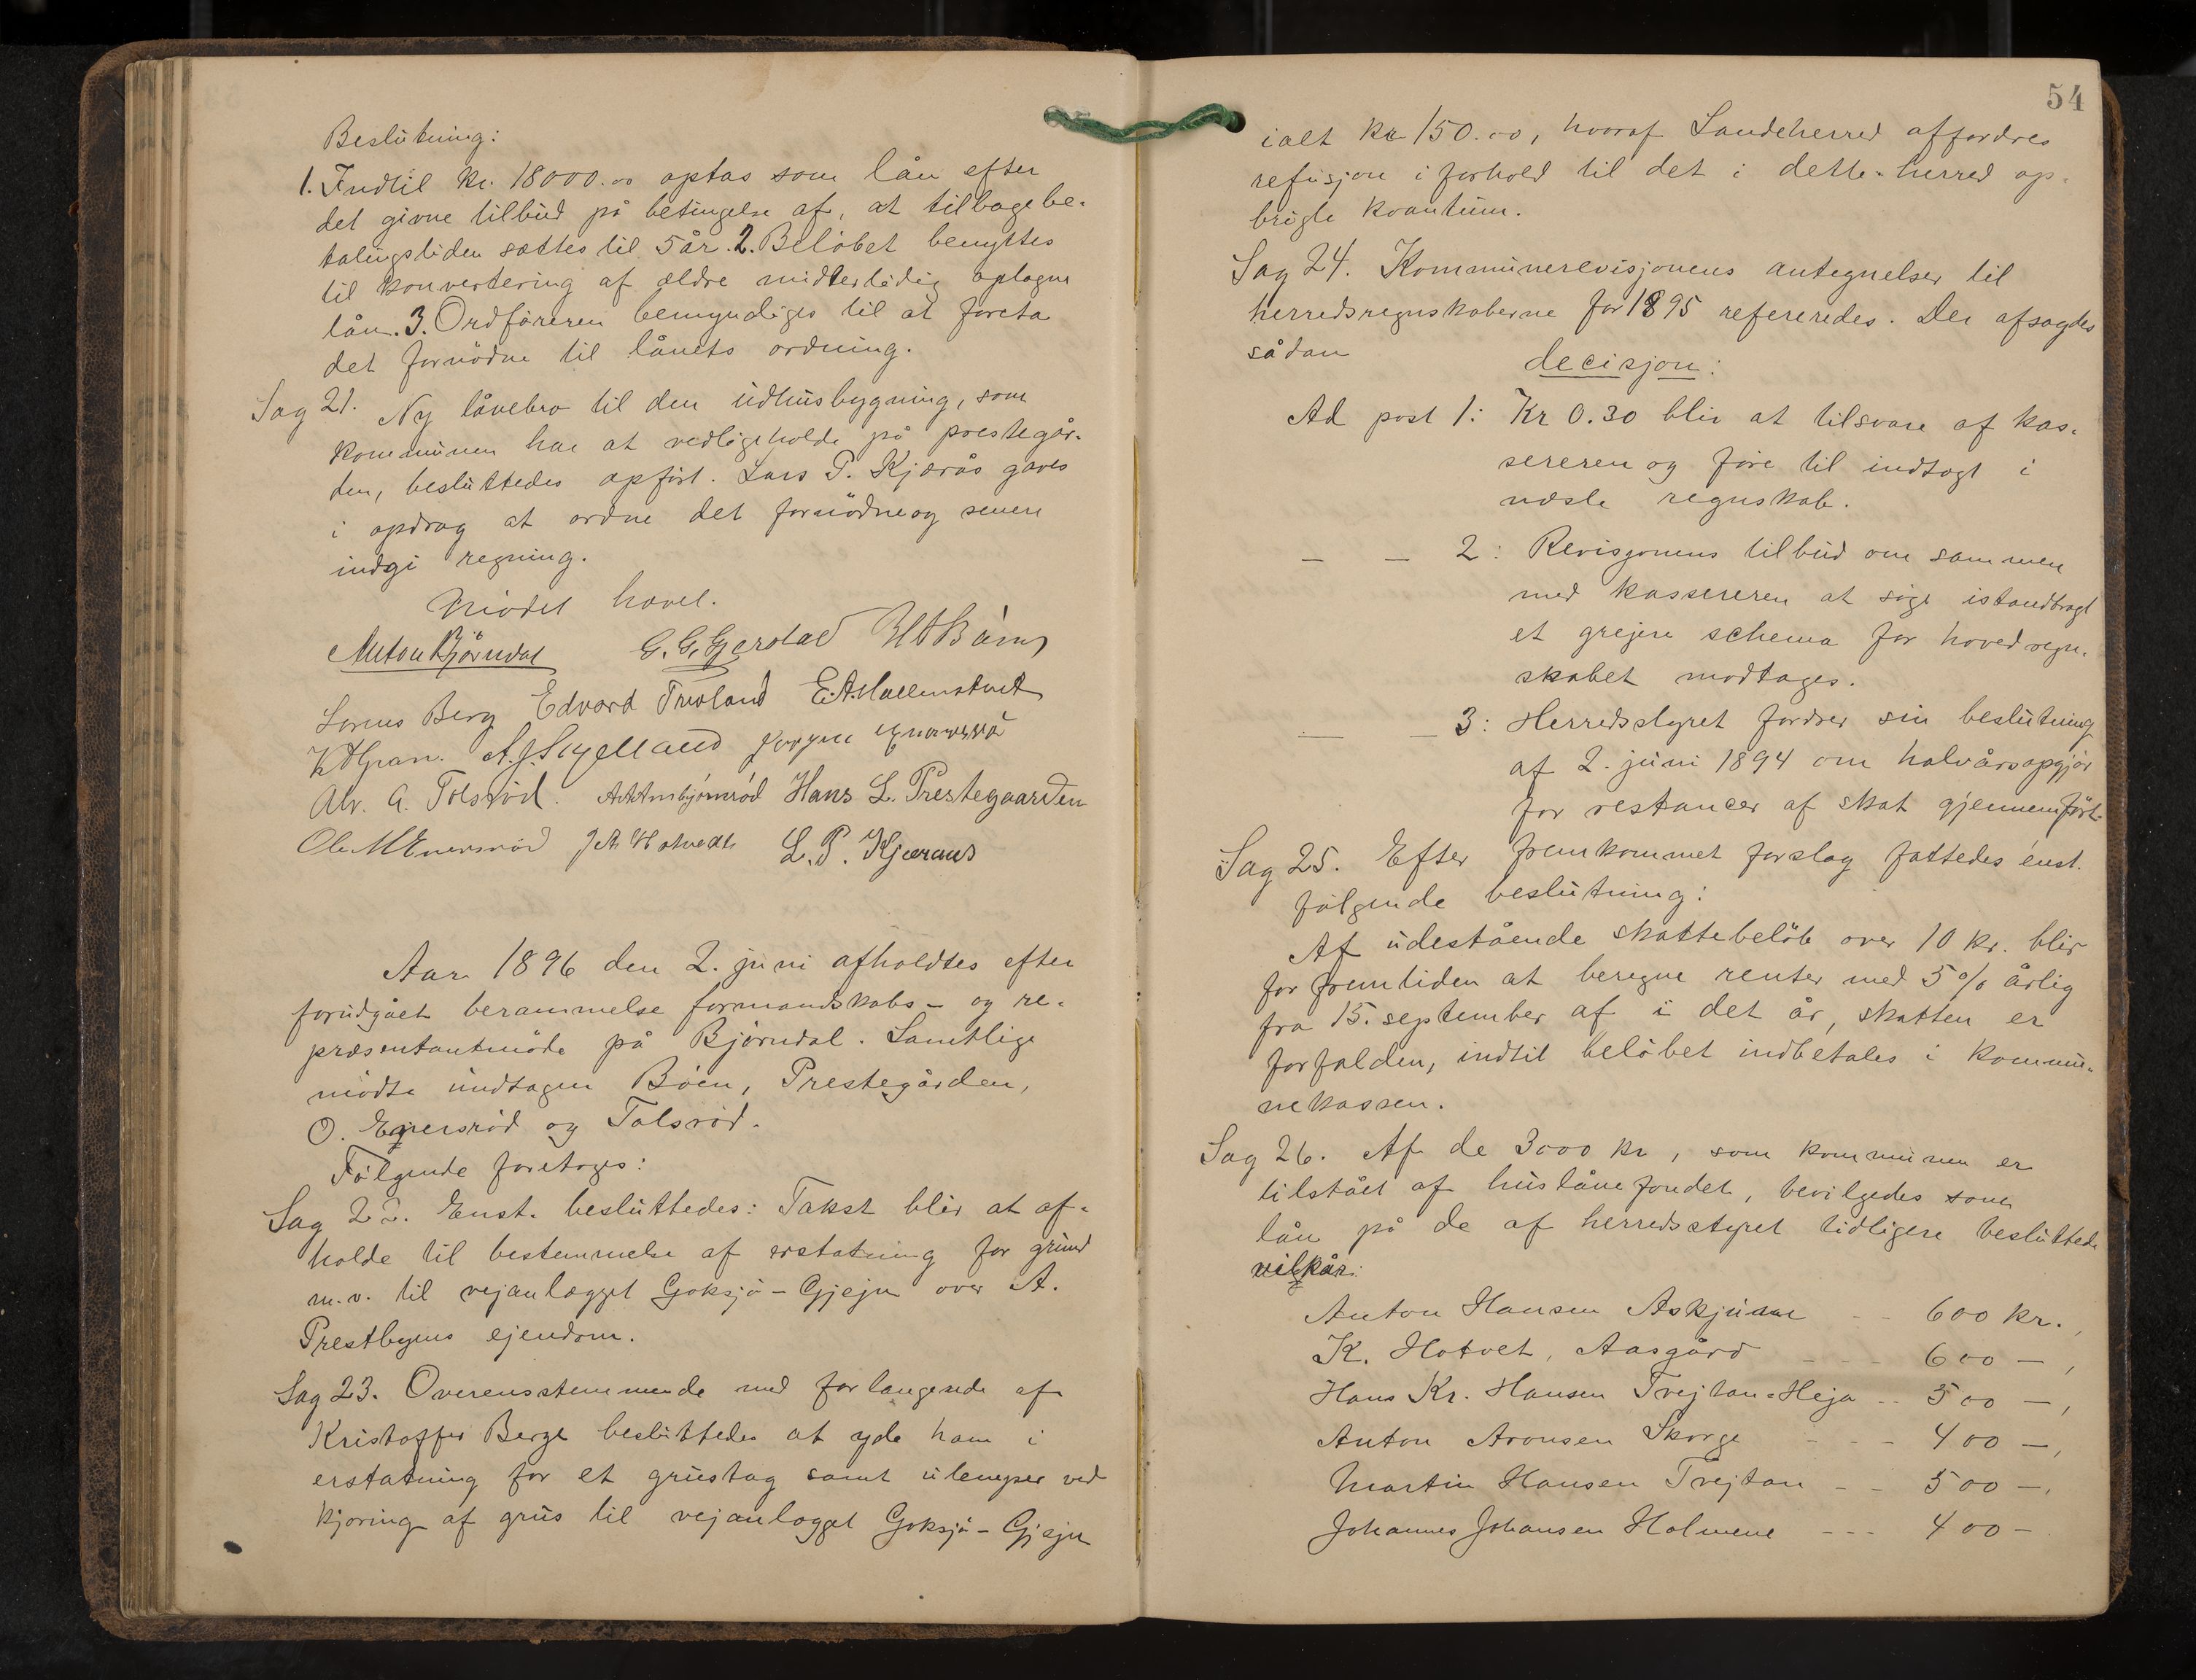 Beslutning:
1. Indtil kr. 18000.00 optas som lån efter
det givne tilbud på betingelse af, at tilbagebe-
talingstiden sættes til 5 år. 2. Beløbet benyttes
til konvertering af ældre midlertidig optagne
lån. 3. Ordføreren bemyndiges til at foreta
det fornødne til lånets ordning.
Sag 21. Ny låvebro til den udhusbygning, som
kommunen har at vedligeholde på prestegår-
den, besluttedes opført. Lars P. Kjærås gaves
i opdrag at ordne det fornødne og senere
indgi regning.
Mødet hævet.
Anton Bjørndal G. G. Gjerstad
Lorens Berg Edvard Trevland E. A. Mallemstvet
A. J. Skjelland
Alv. A. Tolsrød. A Arnbjørnrød Hans L. Prestegaarden
Ole M Enersrød J. A. Hotvedt L. P. Kjæraas
Aar 1896 den 2. juni afholdtes efter
forudgået berammelse formandskabs- og re-
præsentantmøde på Bjørndal. Samtlige
mødte undtagen Bøen, Prestegården,
O. Enersrød og Tolsrød.
Følgende foretoges:
Sag 22. Enst. besluttedes: Takst blir at af-
holde til bestemmelse af erstatning for grund
m.v. til vejanlægget Goksjø - Gjejn over A.
Prestbyens ejendom.
Sag 23. Overensstemmende med forlangende af
Kristoffer Berge besluttedes at yde ham i
erstatning for et grustag samt ulemper ved
kjøring af grus til vejanlægget Goksjø - Gjejn
54
ialt kr 150.00, hvoraf Sandeherred affordres
refusjon i forhold til det i dette herred op-
brugte kvantum.
Sag 24. Kommunerevisjonens antegnelser til
herredsregnskaberne for 1895 refereredes. Der afsagdes
sådan
decisjon:
Ad post 1: Kr 0.30 blir at tilsvare af kas-
sereren og føre til indtægt i
næste regnskab.
— — 2: Revisjonens tilbud om sammen
med kassereren at søge istandbragt
et grejere schema for hovedregn-
skabet modtages.
— — 3: Herredsstyret fordrer sin beslutning
af 2. juni 1894 om halvårsopgjør
for restancer af skat gjennemført.
Sag 25. Efter fremkommet forslag fattedes enst.
følgende beslutning:
Af udestående skattebeløb over 10 kr. blir
for fremtiden at beregne renter med 5% årlig
fra 15. september af i det år, skatten er
forfalden, indtil beløbet indbetales i kommu-
nekassen.
Sag 26. Af de 3000 kr, som kommunen er
tilstået af huslånefondet, bevilgedes som
lån på de af herredsstyret tidligere besluttede
vilkår:
Anton Hansen Askjum - - 600 kr.,
K. Hotvet, Aasgård - - - 600 —,
Hans Kr. Hansen Tvejtan-Heja - - 500 —,
Anton Aronsen Skorge - - - 400 —,
Martin Hansen Tvejtan - - 500 —,
Johannes Johansen Holmene - - - 400 —